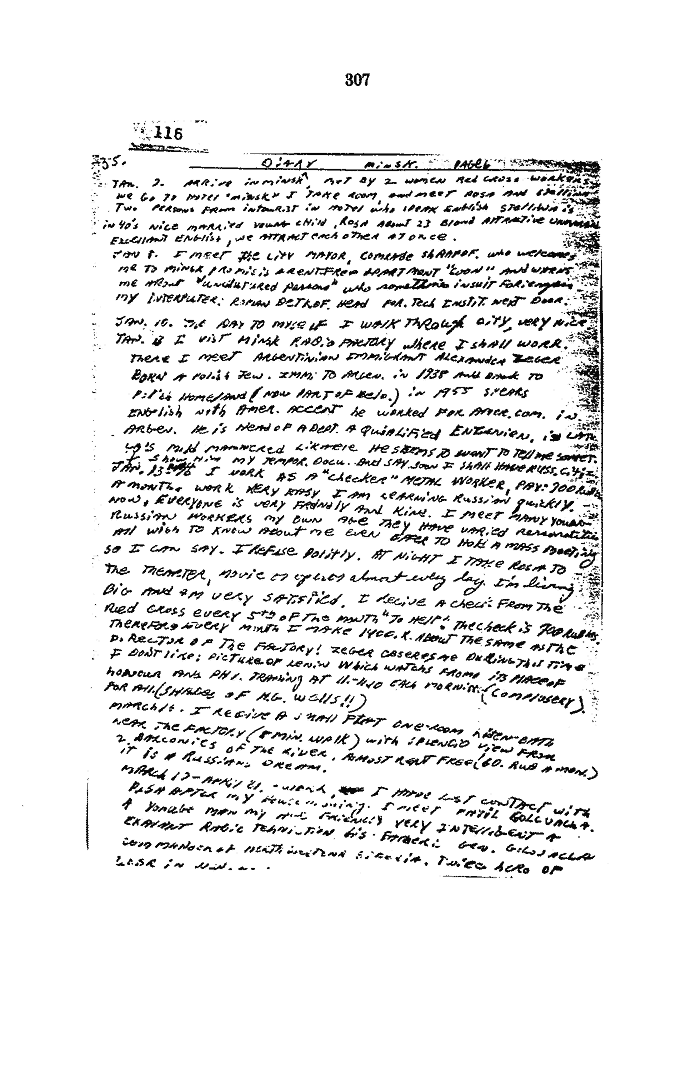 307
116
35. DIARY MINSK. PAGE 6
JAN. 7. ARRIVE IN MINSK, MET BY 2 WOMEN RED CROSS WORKERS.
WE GO TO HOTEL "MINSK" I TAKE ROOM, AND MEET ROSA AND STELLINA
TWO PERSONS FROM INTOURIST IN HOTEL WHO SPEAK ENGLISH STELLINA IS
IN 40'S NICE MARRIED YOUNG CHILD, ROSA ABOUT 23 BLOND ATTRACTIVE UNMARRIED
EXCELLANT ENGLISH, WE ATTRACT EACH OTHER AT ONCE.
JAN 8. I MEET THE CITY MAYOR, COMRADE SHARAPOF, WHO WELCOMES
ME TO MINSK, PROMISIS A RENT-FREE APARTMENT "SOON" AND WARNS
ME ABOUT "UNCULTURED PERSONS" WHO SOMETIMES INSUIT FORIENGERS
MY INTERPUTER: ROMAN DETKOF, HEAD FOR. TECH INSTIT. NEXT DOOR.
JAN. 10. THE DAY TO MYSELF I WALK THROUGH CITY, VERY NICE
JAN. 11 I VIST MINSK RADIO FACTORY WHERE I SHALL WORK.
THERE I MEET ARGENTINIAN IMMIGRANT ALEXANDER ZEGER
BORN A POLISH JEW. IMM. TO ARGEN. IN 1938 AND BACK TO
POLISH HOMELAND (NOW PART OF BELO.) IN 1955 SPEAKS
ENGLISH WITH AMER. ACCENT HE WORKED FOR AMER. COM. IN
ARGEN. HE IS HEAD OF A DEPT. A QUALIFIED ENGENIER, IN LATE
40'S MILD MANNERED LIKABLE HE SEEMS TO WANT TO TELL ME SOMET.
I SHOW HIM MY TEMPOR. DOCU. AND SAY SOON I SHALL HAVE RUSS. CITIZ.
JAN. 13-16 I WORK AS A "CHECKER" METAL WORKER, PAY: 700 RUBLES
A MONTH, WORK VERY EASY I AM LEARNING RUSSIAN QUICKLY.
NOW, EVERYONE IS VERY FRIENDLY AND KIND. I MEET MANY YOUNG
RUSSIAN WORKERS MY OWN AGE THEY HAVE VARIED PERSONALITIES
ALL WISH TO KNOW ABOUT ME EVEN OFFER TO HOLD A MASS MEETING
SO I CAN SAY. I REFUSE POLITLY. AT NIGHT I TAKE ROSA TO
THE THEARTER, MOVIE OR OPERA ALMOST EVERY DAY. I'M LIVING
BIG AND AM VERY SATISFIED. I RECIVE A CHECK FROM THE
RED CROSS EVERY 5TH OF THE MONTH "TO HELP". THE CHECK IS 700 RUBLES
THEREFORE EVERY MONTH I MAKE 1400.R. ABOUT THE SAME AS THE
DIRECTOR OF THE FACTORY! ZEGER OBSERES ME DURING THIS TIME
I DON'T LIKE: PICTURE OF LENIN WHICH WATCHS FROM ITS PLACE OF
HONOUR AND PHY. TRAINING AT 11-11.10 EACH MORNING (COMPLUSERY)
FOR ALL. (SHADES OF H.G. WELLS!!)
MARCH 16. I RECIVE A SMALL FLAT ONE-ROOM KITCHEN-BATH
NEAR THE FACTORY (8 MIN. WALK) WITH SPLENDID VIEW FROM
2 BALCONIES OF THE RIVER, ALMOST RENT FREE (60. RUB A MON.)
IT IS A RUSSIANS DREAM.
MARCH 17-APRIL 31, - WORK, I HAVE LOST CONTACT WITH
ROSA AFTER MY HOUSE MOVING. I MEET PAVIL GOLOVACHA.
A YONUBE MAN MY AGE FRIENDLY VERY INTELLIGENT A
EXALANT RADIO TEHNICTION HIS FATHER IS GEN. GOLOVACHA
COMMANDER OF NORTHWESTENR SIBERIA. TWICE HERO OF
USSR IN W.W. 2.